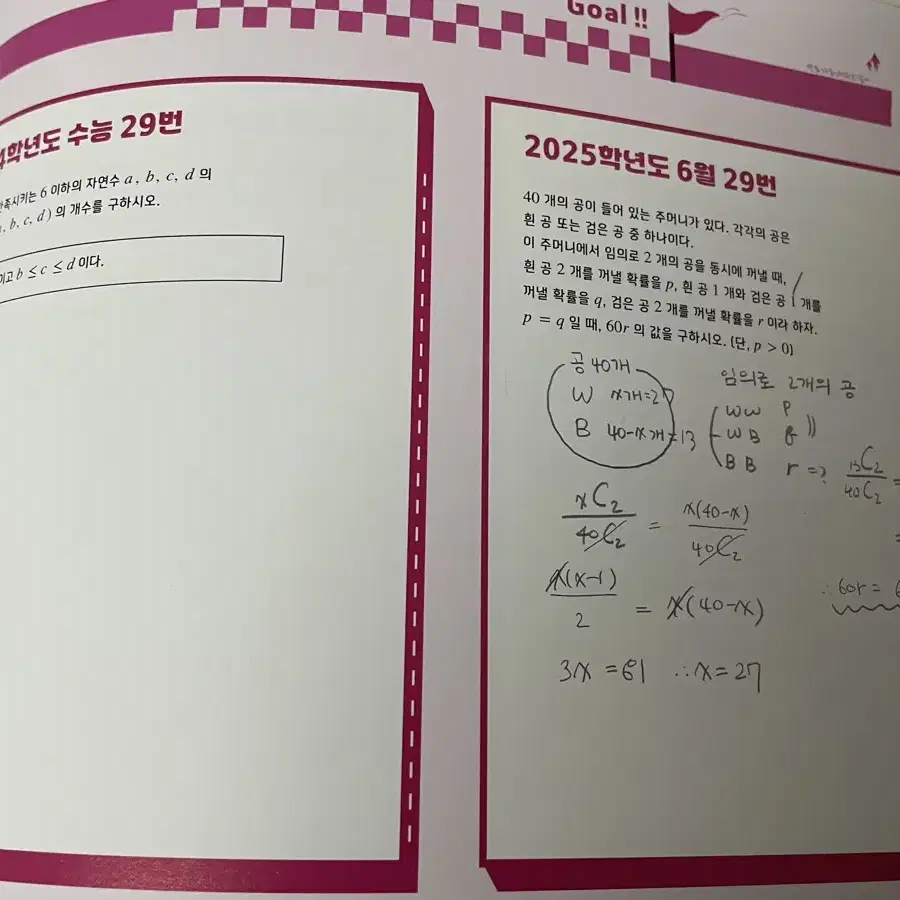 Goal !!
4학년도 수능 29번
만족시키는 6 이하의 자연수 a, b, c, d 의
, b, c, d ) 의 개수를 구하시오.
이고 b ≤ c ≤ d 이다.
2025학년도 6월 29번
40 개의 공이 들어 있는 주머니가 있다. 각각의 공은
흰 공 또는 검은 공 중 하나이다.
이 주머니에서 임의로 2 개의 공을 동시에 꺼낼 때,
흰 공 2 개를 꺼낼 확률을 p, 흰 공 1 개와 검은 공 1 개를
꺼낼 확률을 q, 검은 공 2 개를 꺼낼 확률을 r 이라 하자.
p = q 일 때, 60r 의 값을 구하시오. (단, p > 0)
공 40개
W x개=27
B 40-x개=13
임의로 2개의 공
WW p
WB q
BB r ⇒? 13C2/40C2 =
xC2/40C2 = x(40-x)/40C2
x(x-1)/2 = x(40-x)
∴ 60r = 6
3x = 81 ∴ x = 27